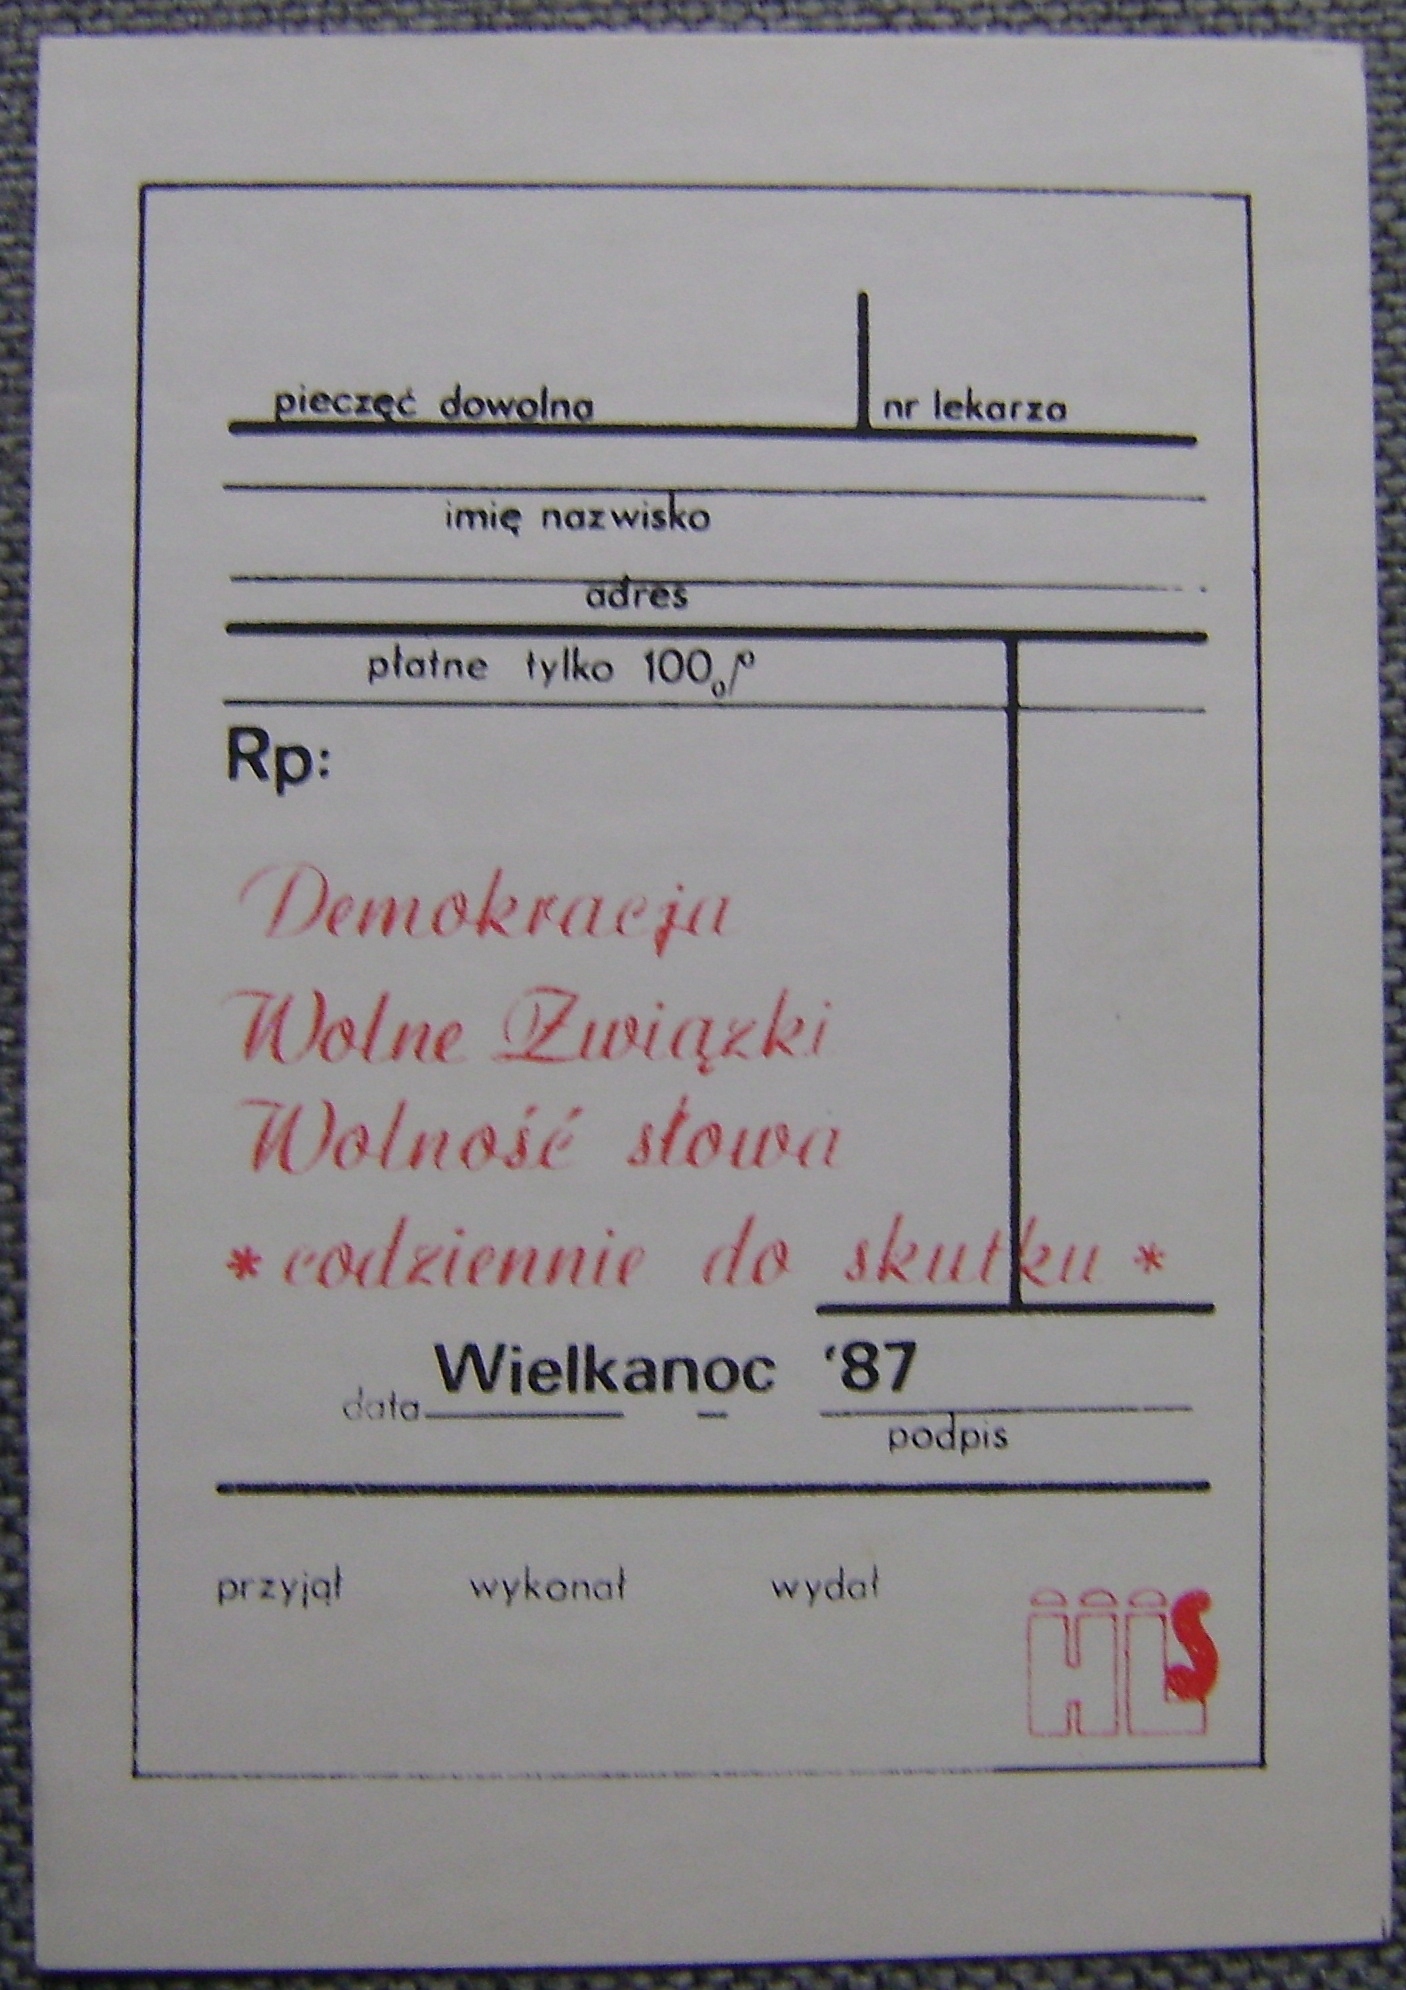 pieczęć dowolna nr lekarza
imię nazwisko
adres
płatne tylko 100%
Rp:
Demokracja
Wolne Związki
Wolność słowa
* codziennie do skutku *
Wielkanoc '87
data podpis
przyjął wykonał wydał
HLS